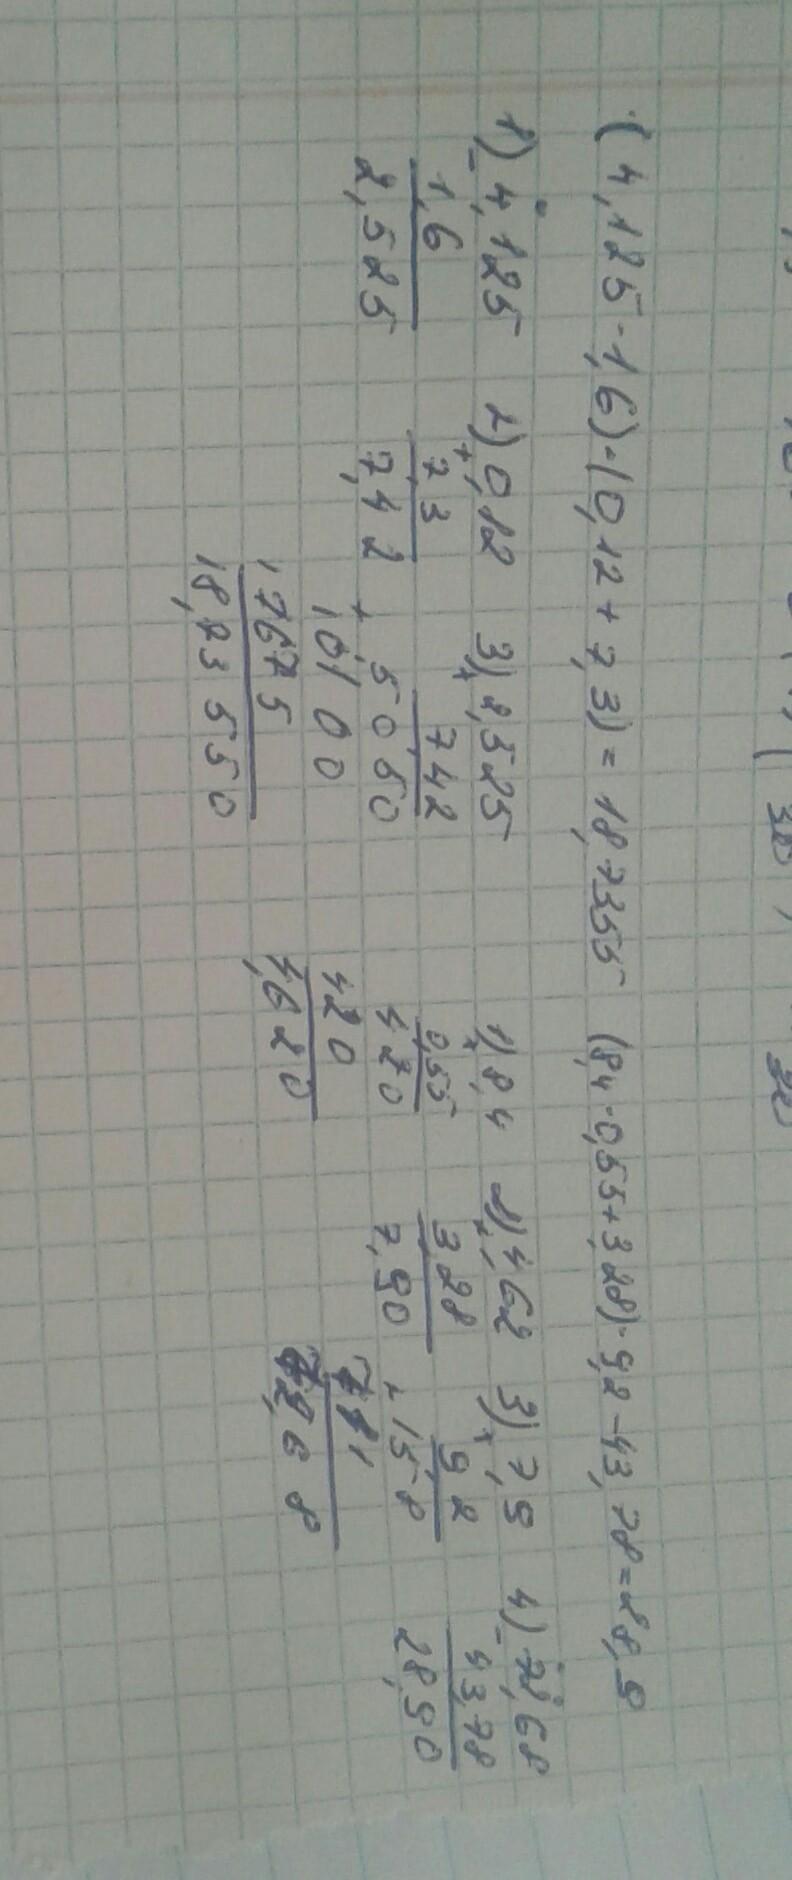 (4,125-1,6)·(0,12+7,3)=18,7355 (8,4·0,55+3,28)·9,2-43,78=28,9
1) 4,125 2) 0,12 3) 2,525 1) 8,4 2) 4,62 3) 7,9 4) 72,68
- 1,6 + 7,3 × 7,42 × 0,55 + 3,28 × 9,2 - 43,78
2,525 7,42 5050 420 7,90 + 158 28,90
+ 10100 420 711
17675 4,620 72,68
18,73550